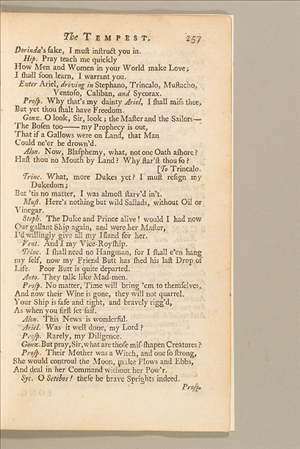 The TEMPEST. 257
Dorinda's sake, I must instruct you in.
Hip. Pray teach me quickly
How Men and Women in your World make Love;
I shall soon learn, I warrant you.
Enter Ariel, driving in Stephano, Trincalo, Mustacho,
Ventoso, Caliban, and Sycorax.
Prosp. Why that's my dainty Ariel, I shall miss thee,
But yet thou shalt have Freedom.
Gonz. O look, Sir, look; the Master and the Sailors—
The Bosen too—my Prophecy is out,
That if a Gallows were on Land, that Man
Could ne'er be drown'd.
Alon. Now, Blasphemy, what, not one Oath ashore?
Hast thou no Mouth by Land? Why star'st thou so?
[To Trincalo.
Trinc. What, more Dukes yet? I must resign my
Dukedom;
But 'tis no matter, I was almost starv'd in't.
Must. Here's nothing but wild Sallads, without Oil or
Vinegar.
Steph. The Duke and Prince alive! would I had now
Our gallant Ship again, and were her Master,
I'd willingly give all my Island for her.
Vent. And I my Vice-Royship.
Trinc. I shall need no Hangman, for I shall e'en hang
my self, now my Friend Butt has shed his last Drop of
Life. Poor Butt is quite departed.
Anto. They talk like Mad-men.
Prosp. No matter, Time will bring 'em to themselves,
And now their Wine is gone, they will not quarrel.
Your Ship is safe and tight, and bravely rigg'd,
As when you first set sail.
Alon. This News is wonderful.
Ariel. Was it well done, my Lord?
Prosp. Rarely, my Diligence.
Gonz. But pray, Sir, what are those mis-shapen Creatures?
Prosp. Their Mother was a Witch, and one so strong,
She would controul the Moon, make Flows and Ebbs,
And deal in her Command without her Pow'r.
Syc. O Setebos! these be brave Sprights indeed.
Prosp.